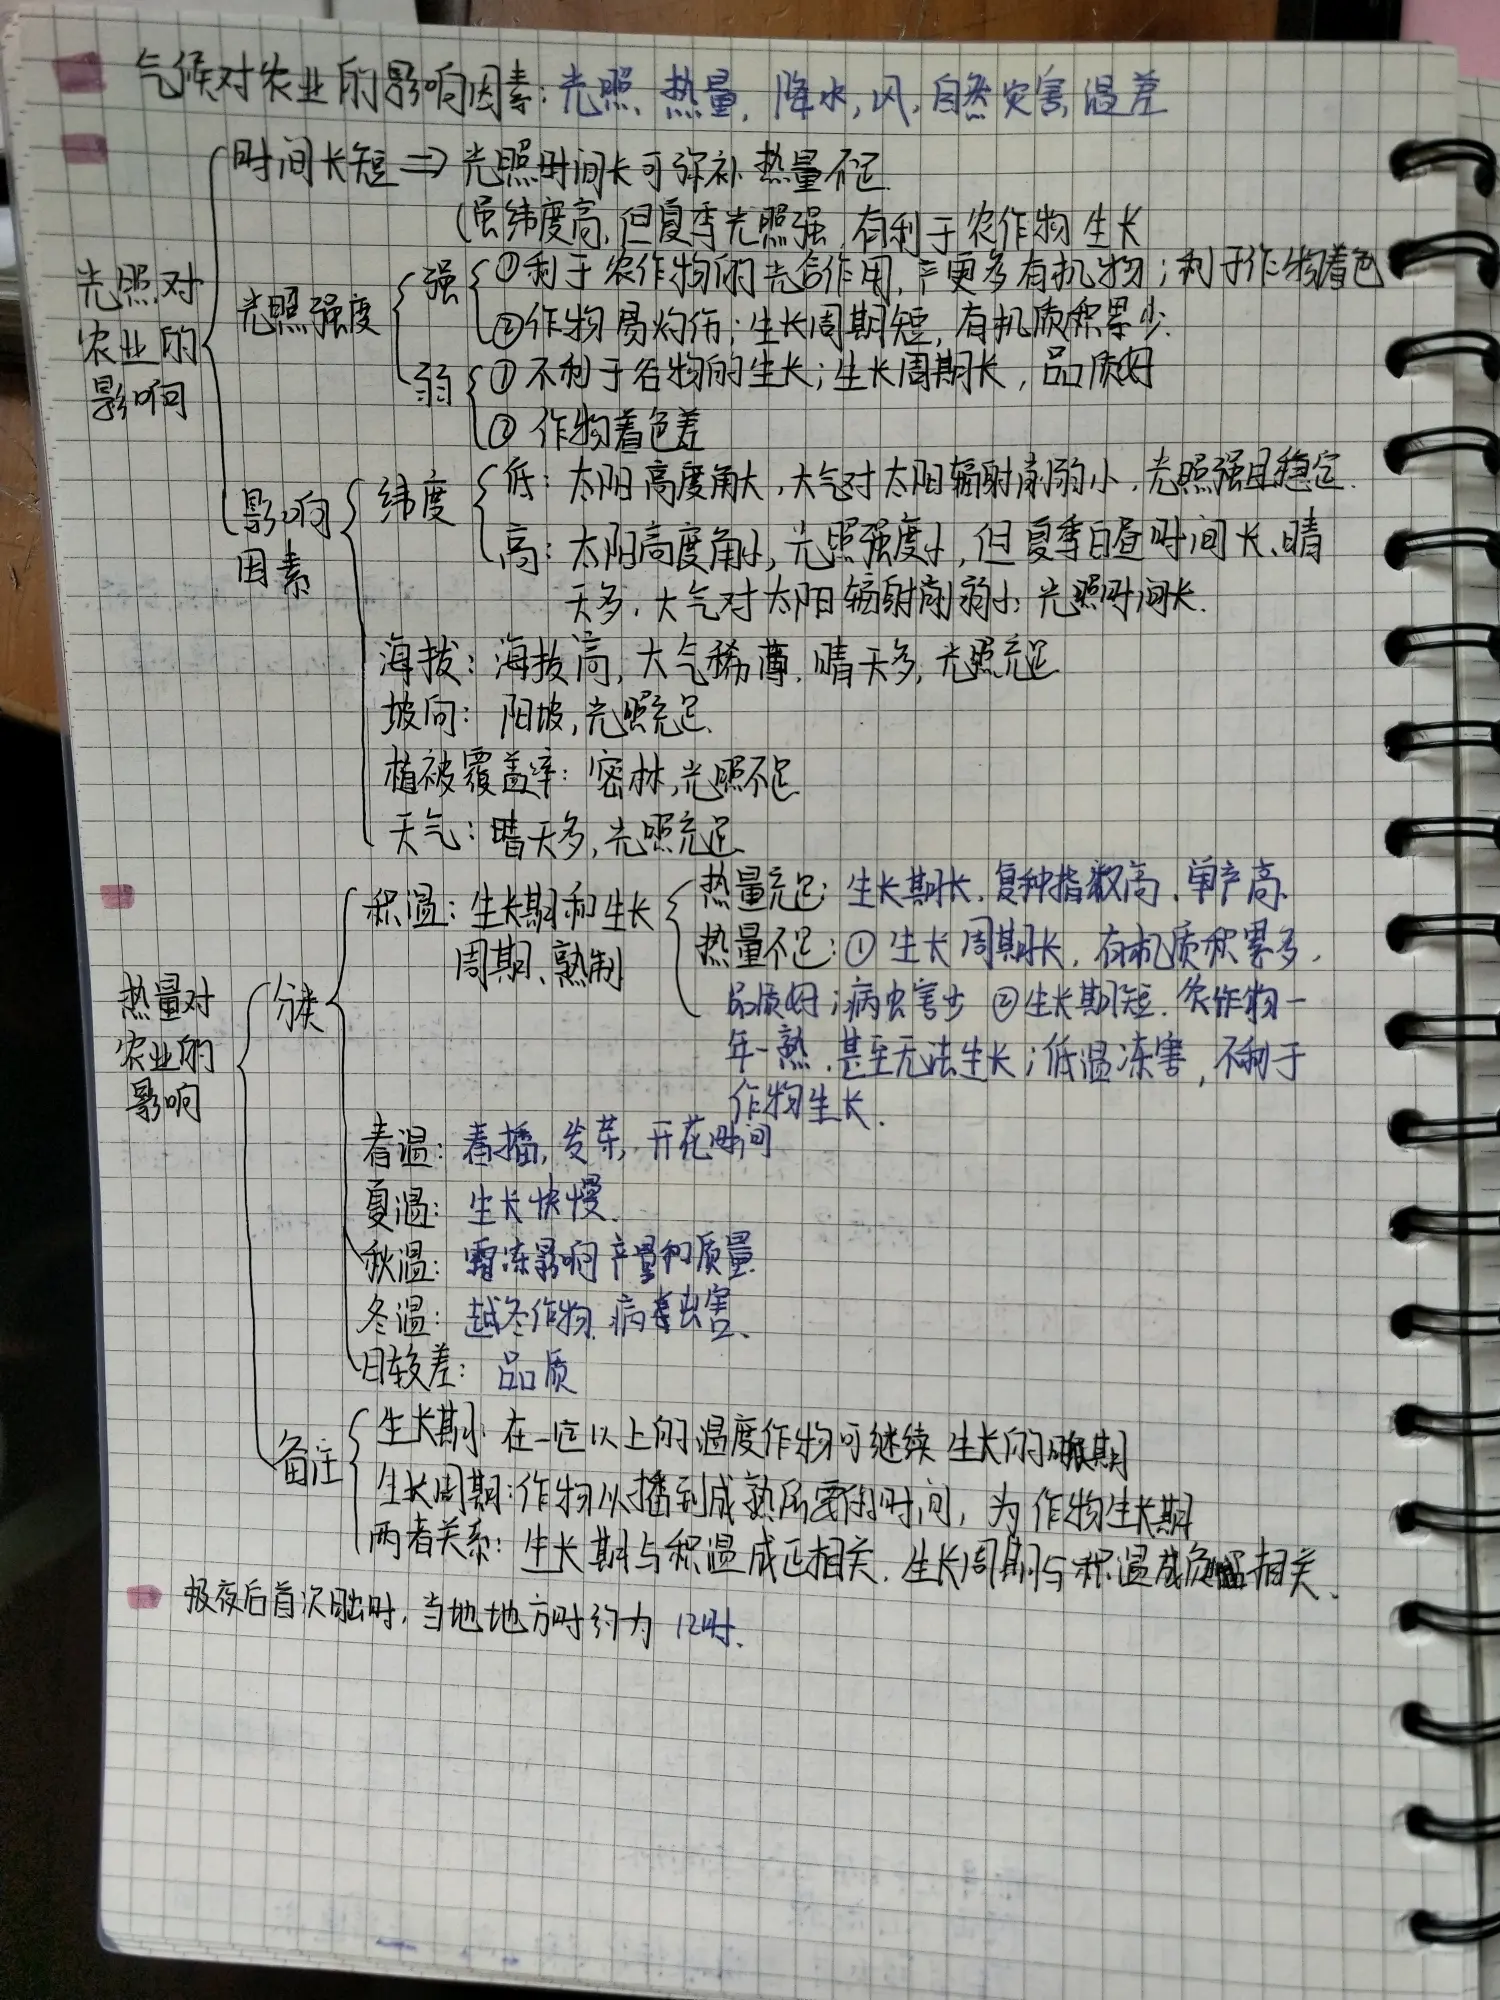 气候对农业的影响因素:光照、热量、降水,风,自然灾害,温差
时间长短⇒光照时间长可弥补热量不足
(虽纬度高,但夏季光照强,有利于农作物生长
光照对
农业的
影响
光照强度
强
①利于农作物的光合作用,产更多有机物;利于作物着色
②作物易灼伤;生长周期短,有机质积累少.
弱
①不利于谷物的生长;生长周期长,品质好
②作物着色差
影响
因素
纬度
低:太阳高度角大,大气对太阳辐射削弱小,光照强且稳定.
高:太阳高度角小,光照强度小,但夏季白昼时间长、晴
天多,大气对太阳辐射削弱小,光照时间长.
海拔:海拔高,大气稀薄,晴天多,光照充足
坡向:阳坡,光照充足.
植被覆盖率:密林,光照不足
天气:晴天多,光照充足
热量对
农业的
影响
分类
积温:生长期和生长
周期、熟制
热量充足:生长期长,复种指数高,单产高.
热量不足:①生长周期长,有机质积累多,
品质好;病虫害少 ②生长期短,农作物一
年一熟,甚至无法生长;低温冻害,不利于
作物生长.
春温:春播,发芽,开花时间
夏温:生长快慢.
秋温:霜冻影响产量和质量
冬温:越冬作物,病虫害.
日较差:品质
备注
生长期:在一定以上的温度作物可继续生长的时期
生长周期:作物从播到成熟所需的时间,为作物生长期
两者关系:生长期与积温成正相关,生长周期与积温成负相关.
极夜后首次日出时,当地地方时约为12时.